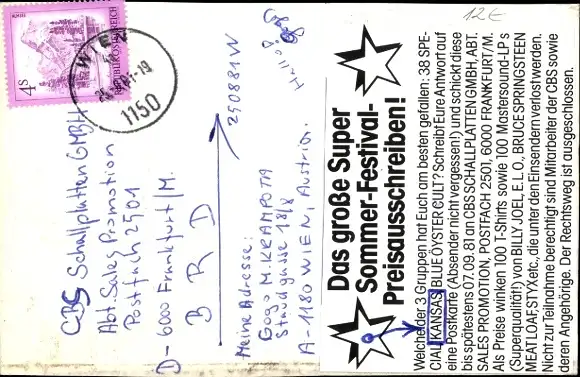 12€
4S
REPUBLIK ÖSTERREICH
WIEN
1150
CBS Schallplatten GMBH
Abt. Sales Promotion
Postfach 2501
D-6000 Frankfurt/M.
B R D
Meine Adresse:
Gogo M. KRAMPOTA
Staudgasse 18/8
A-1180 WIEN, Austria.
250881W
Hello!
Das große Super
Sommer-Festival-
Preisausschreiben!
Welche der 3 Gruppen hat Euch am besten gefallen: 38 SPE-
CIAL, KANSAS, BLUE OYSTER CULT? Schreibt Eure Antwort auf
eine Postkarte (Absender nicht vergessen!) und schickt diese
bis spätestens 07.09.81 an CBS SCHALLPLATTEN GMBH, ABT.
SALES PROMOTION, POSTFACH 2501, 6000 FRANKFURT/M.
Als Preise winken 100 T-Shirts sowie 100 Mastersound-LP s
(Superqualität!) von BILLY JOEL, E.L.O., BRUCE SPRINGSTEEN
MEATLOAF STYX etc., die unter den Einsendern verlost werden.
Nicht zur Teilnahme berechtigt sind Mitarbeiter der CBS sowie
deren Angehörige. Der Rechtsweg ist ausgeschlossen.